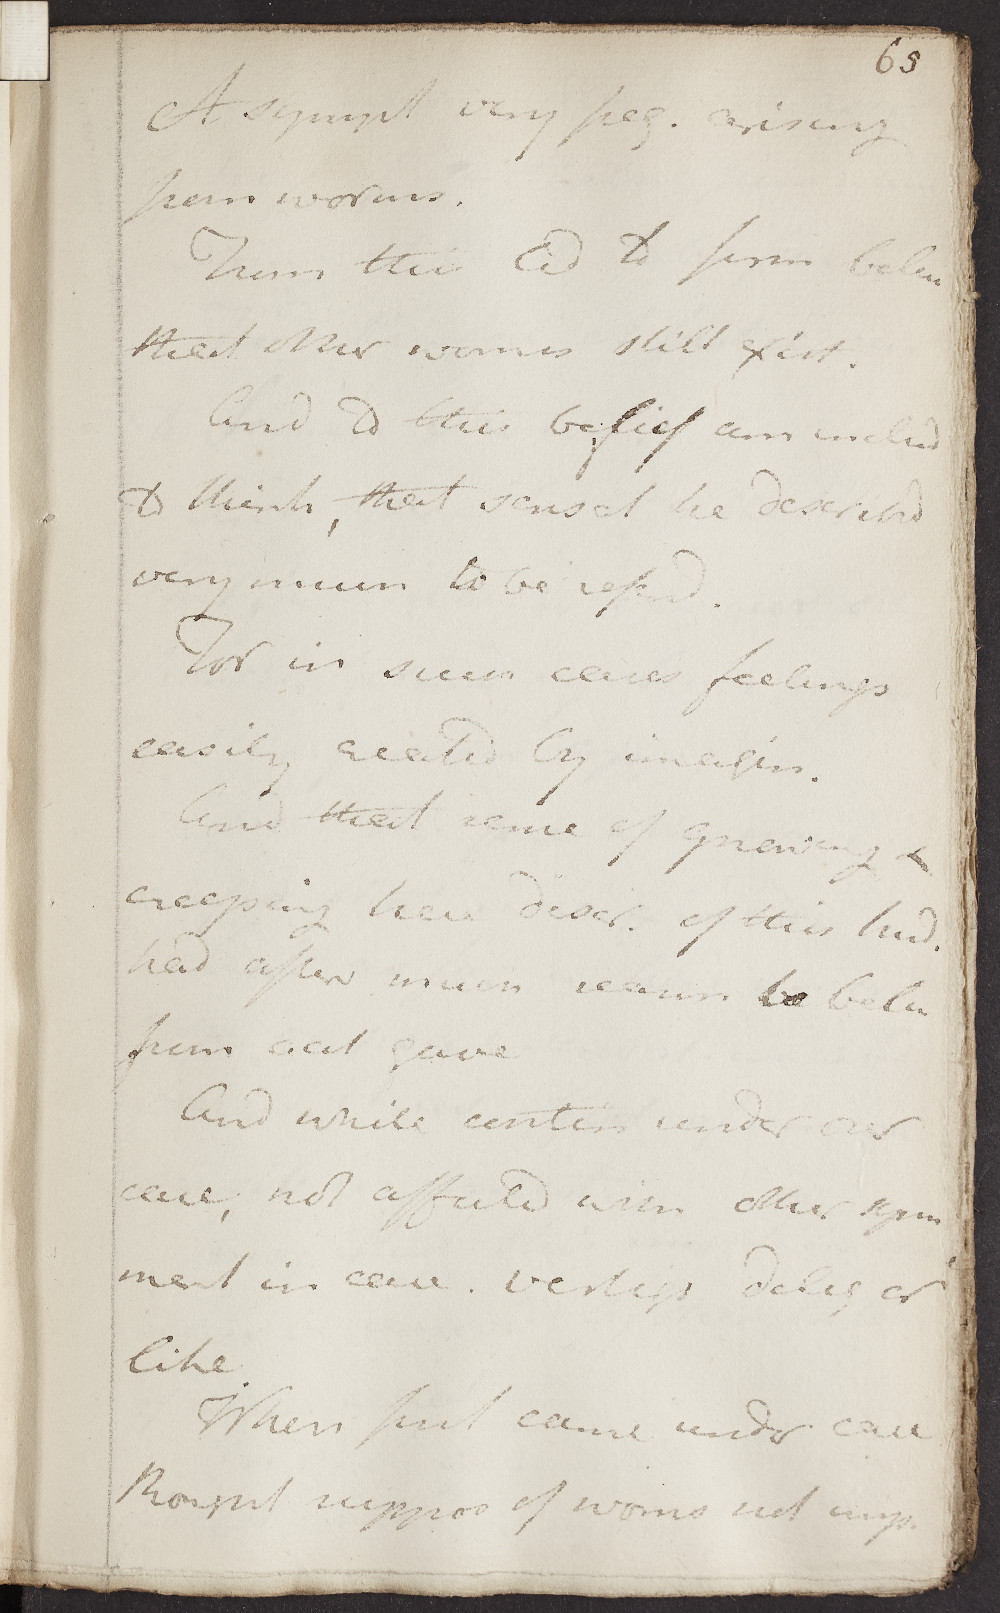 65
A sympt very freq. arising
from worms.
From this led to form belie
that other worms still exist.
And to this belief am inclind
to think, that sensat he describd
very much to be referd.
For in such cases feelings
easily created by imagin.
And that sense of gnawing &
creeping here descr. of this kind.
had after much reason to belie
from acct gave
And while contin under our
care, not affected with other sym
ment in case. vertigo or
like.
When first came under care
thought suppos of worms not imp.